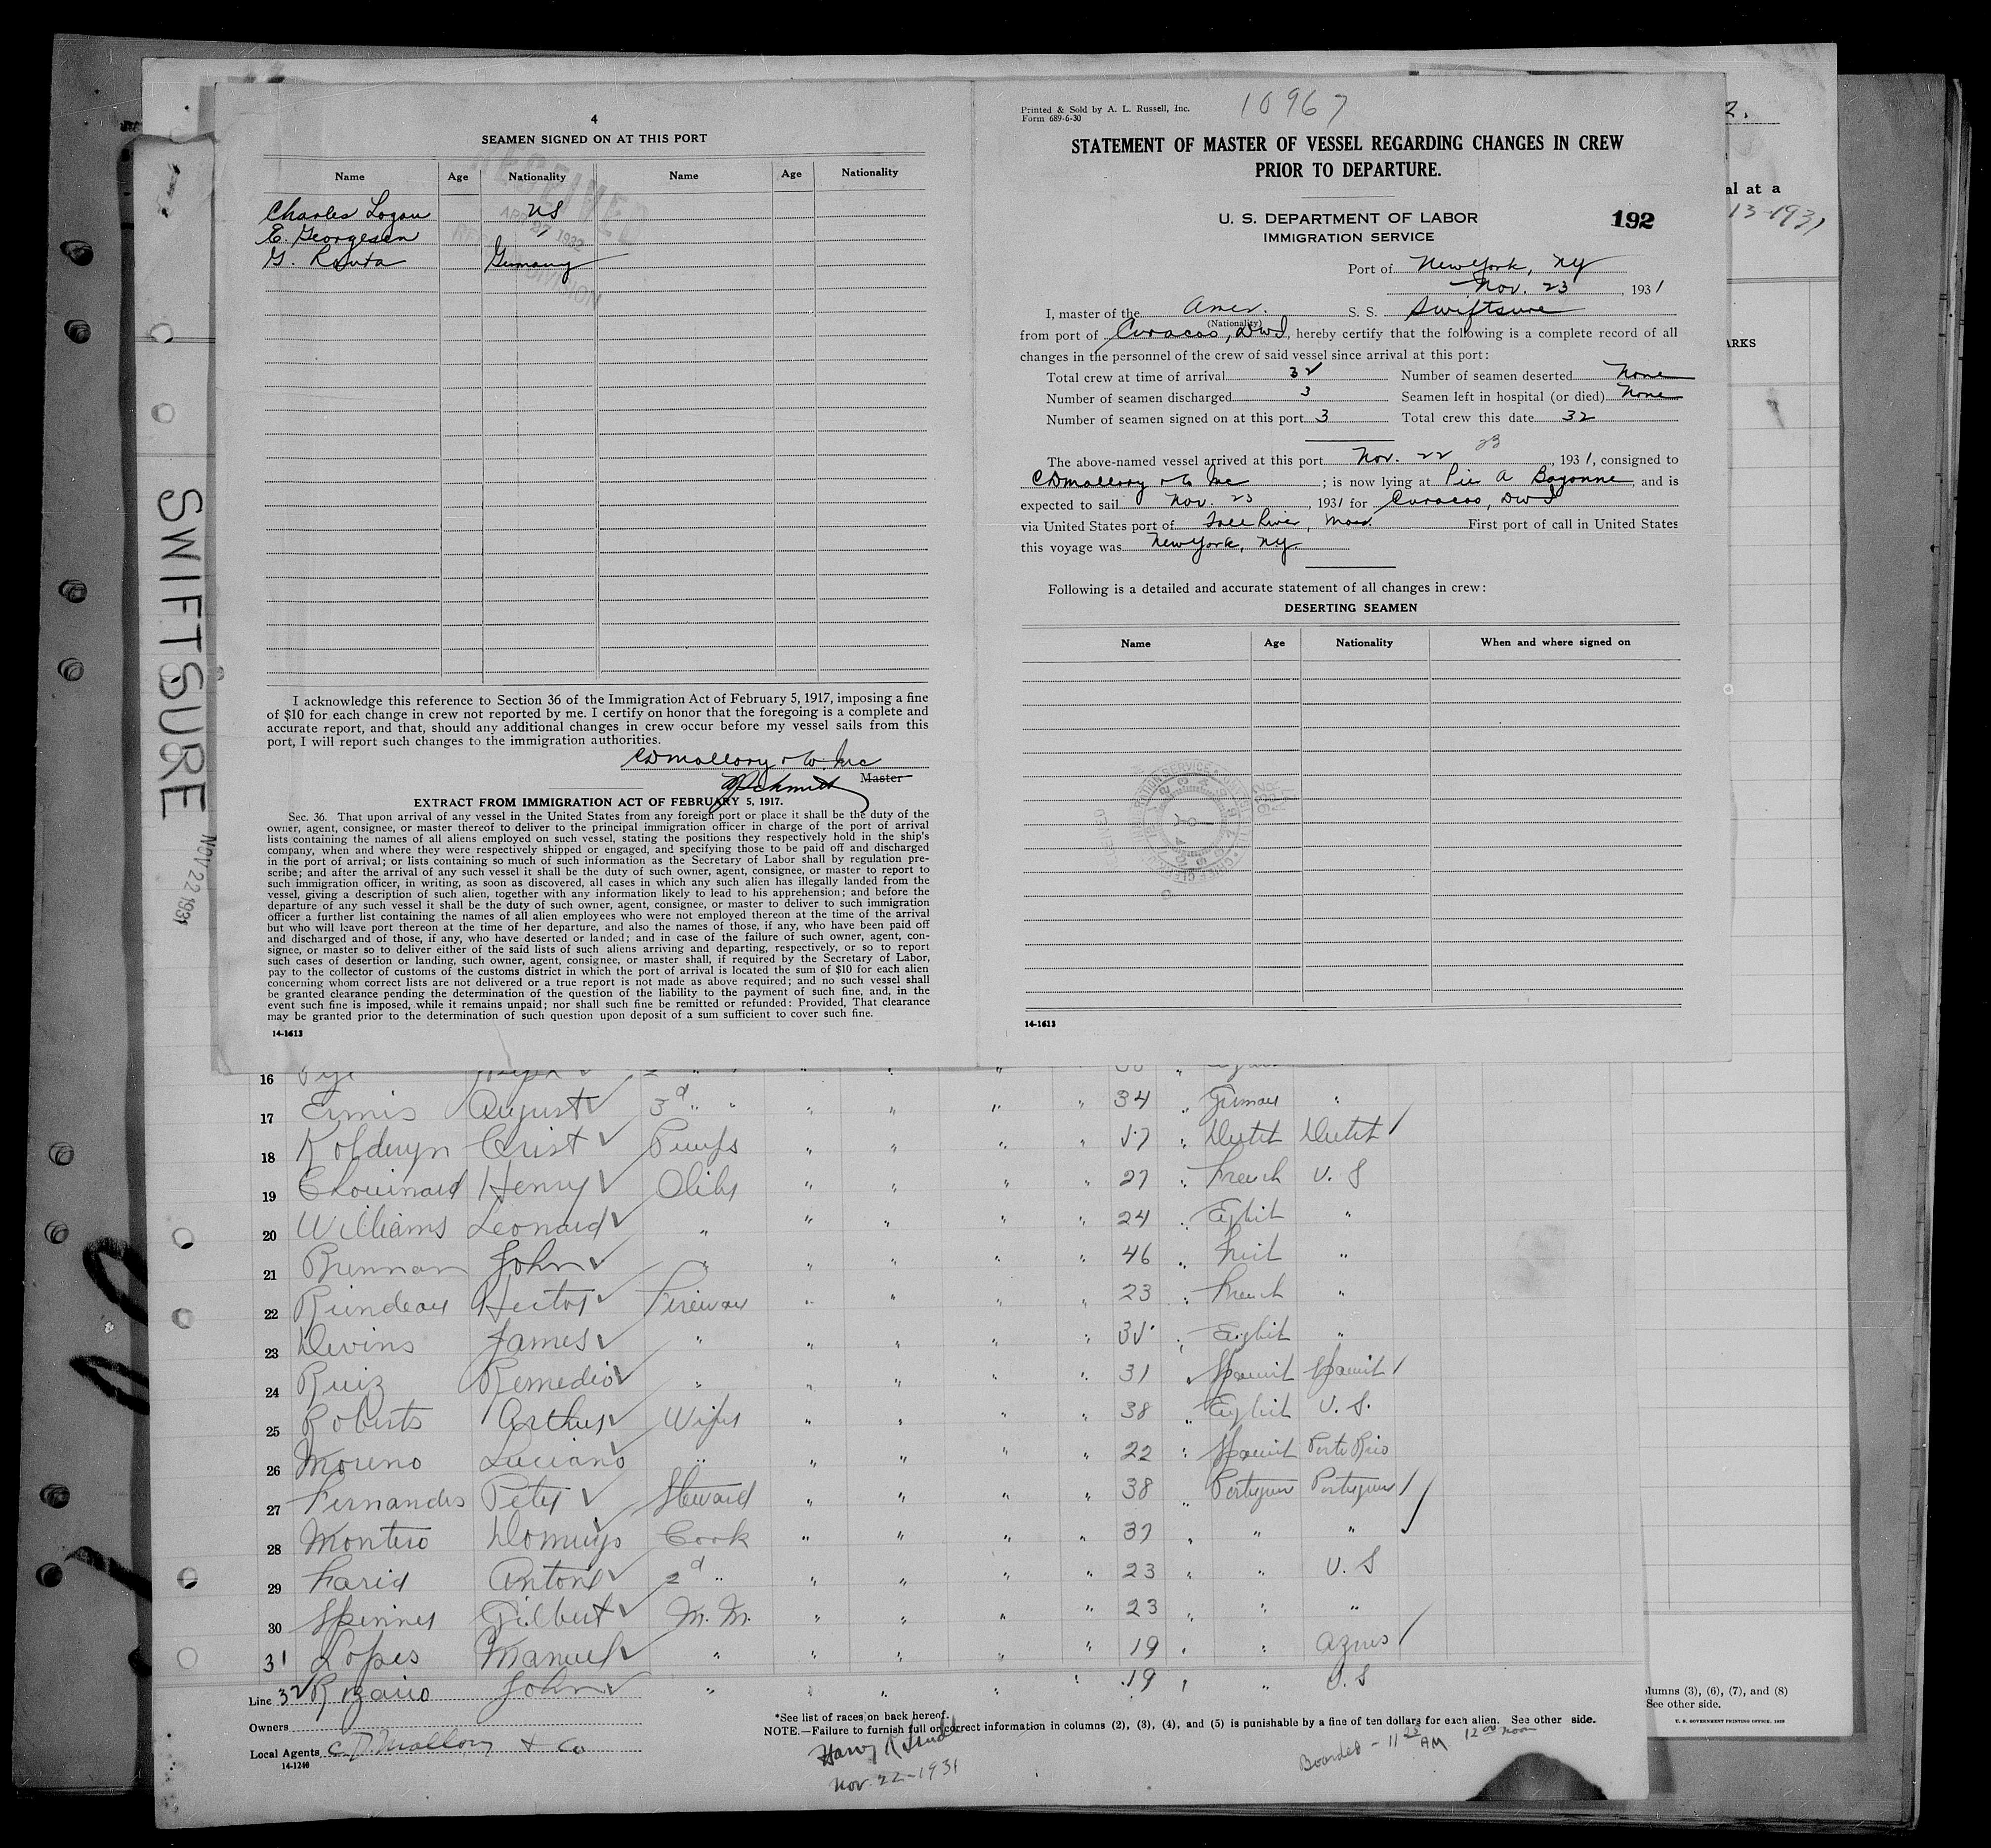 4
SEAMEN SIGNED ON AT THIS PORT
Name Age Nationality Name Age Nationality
Charles Logan US
E. Georgesen "
G. Germany
I acknowledge this reference to Section 36 of the Immigration Act of February 5, 1917, imposing a fine
of $10 for each change in crew not reported by me. I certify on honor that the foregoing is a complete and
accurate report, and that, should any additional changes in crew occur before my vessel sails from this
port, I will report such changes to the immigration authorities.
CDMallory & Co. Inc
Schmidt Master
EXTRACT FROM IMMIGRATION ACT OF FEBRUARY 5, 1917.
Sec. 36. That upon arrival of any vessel in the United States from any foreign port or place it shall be the duty of the
owner, agent, consignee, or master thereof to deliver to the principal immigration officer in charge of the port of arrival
lists containing the names of all aliens employed on such vessel, stating the positions they respectively hold in the ship's
company, when and where they were respectively shipped or engaged, and specifying those to be paid off and discharged
in the port of arrival; or lists containing so much of such information as the Secretary of Labor shall by regulation pre-
scribe; and after the arrival of any such vessel it shall be the duty of such owner, agent, consignee, or master to report to
such immigration officer, in writing, as soon as discovered, all cases in which any such alien has illegally landed from the
vessel, giving a description of such alien, together with any information likely to lead to his apprehension; and before the
departure of any such vessel it shall be the duty of such owner, agent, consignee, or master to deliver to such immigration
officer a further list containing the names of all alien employees who were not employed thereon at the time of the arrival
but who will leave port thereon at the time of her departure, and also the names of those, if any, who have been paid off
and discharged and of those, if any, who have deserted or landed; and in case of the failure of such owner, agent, con-
signee, or master so to deliver either of the said lists of such aliens arriving and departing, respectively, or so to report
such cases of desertion or landing, such owner, agent, consignee, or master shall, if required by the Secretary of Labor,
pay to the collector of customs of the customs district in which the port of arrival is located the sum of $10 for each alien
concerning whom correct lists are not delivered or a true report is not made as above required; and no such vessel shall
be granted clearance pending the determination of the question of the liability to the payment of such fine, and, in the
event such fine is imposed, while it remains unpaid; nor shall such fine be remitted or refunded: Provided, That clearance
may be granted prior to the determination of such question upon deposit of a sum sufficient to cover such fine.
14-1613
Printed & Sold by A. L. Russell, Inc.
Form 689-6-30
10967
STATEMENT OF MASTER OF VESSEL REGARDING CHANGES IN CREW
PRIOR TO DEPARTURE.
U. S. DEPARTMENT OF LABOR
IMMIGRATION SERVICE
192
Port of New York, NY
Nov. 23, 1931
I, master of the Amer. S. S. Swiftsure
(Nationality)
from port of Curacao, DWI, hereby certify that the following is a complete record of all
changes in the personnel of the crew of said vessel since arrival at this port:
Total crew at time of arrival 32 Number of seamen deserted None
Number of seamen discharged 3 Seamen left in hospital (or died) None
Number of seamen signed on at this port 3 Total crew this date 32
23
The above-named vessel arrived at this port Nov. 22, 1931, consigned to
CDMallory & Co Inc; is now lying at Pier A Bayonne, and is
expected to sail Nov. 23, 1931 for Curacao, DWI
via United States port of Fall River, Mass. First port of call in United States
this voyage was New York, NY.
Following is a detailed and accurate statement of all changes in crew:
DESERTING SEAMEN
Name Age Nationality When and where signed on
14-1613
SWIFTSURE
NOV 22 1931
2.
al at a
13-1931
ARKS
16
17 Ermis August 3d " " 34 " German "
18 Kolderyn Crist Pumps 57 " Dutch Dutch
19 Chouinard Henry Oiler 27 " French U. S
20 Williams Leonard " 24 " English "
21 Brennan John " 46 " Irish "
22 Riendeau Hector Fireman 23 " French "
23 Devins James " 35 " English "
24 Ruiz Remedio " 31 " Spanish Spanish
25 Roberts Arthur Wiper 38 " English U. S.
26 Moreno Luciano " 22 " Spanish Porto Rico
27 Fernandes Peter Steward 38 " Portuguese Portuguese
28 Monteiro Domingo Cook 37 " " "
29 Faria Antone 2d " 23 " " U. S
30 Spinney Gilbert M. M. 23 " " "
31 Lopes Manuel " 19 " " Azores
Line 32 Rozario John " 19 " " U. S
*See list of races on back hereof.
NOTE.—Failure to furnish full or correct information in columns (2), (3), (4), and (5) is punishable by a fine of ten dollars for each alien. See other side.
Owners
Local Agents C. D. Mallory & Co
14-1240
Harry R.
Nov. 22-1931
Boarded - 11 25 AM 12 00 noon
lumns (3), (6), (7), and (8)
See other side.
U. S. GOVERNMENT PRINTING OFFICE. 1929